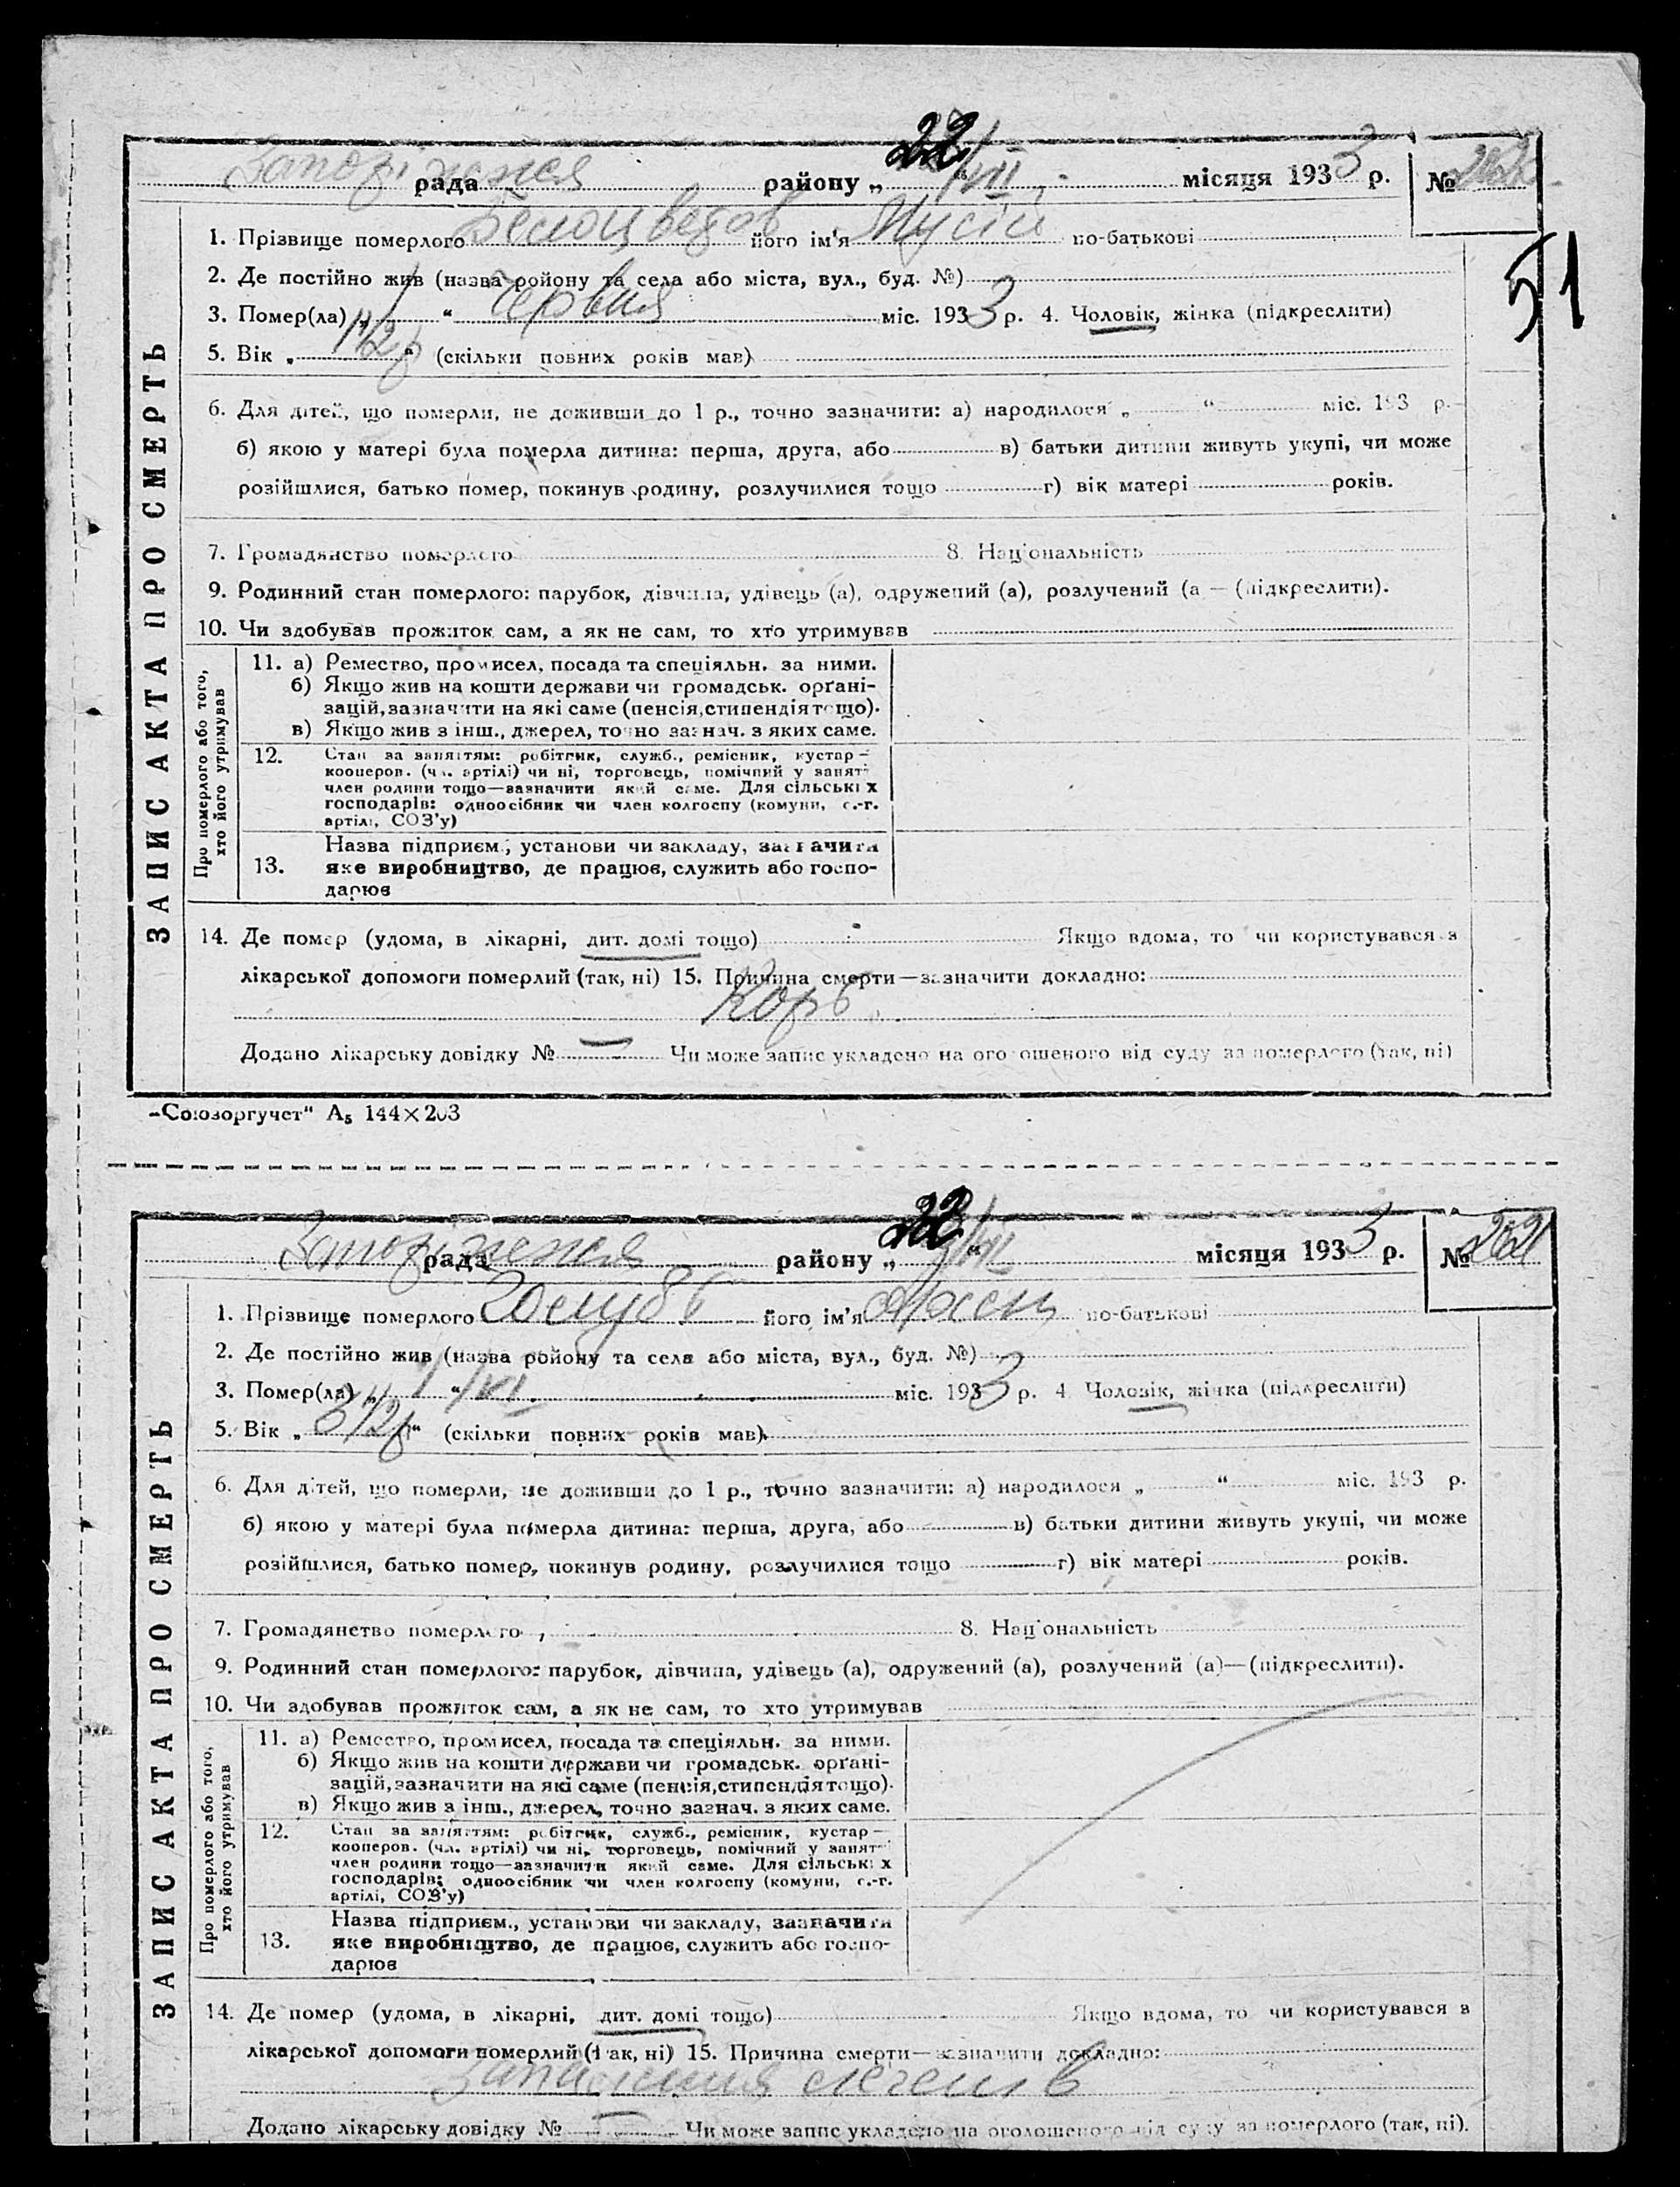 Запорізька рада району „22“ VII місяця 1933 р. №
51
1. Прізвище померлого Белоцветов його ім'я Мусій по-батькові
2. Де постійно жив (назва ройону та села або міста, вул., буд. №)
3. Помер(ла) „1“ червня міс. 1933 р. 4. Чоловік, жінка (підкреслити)
5. Вік „1 1/2 р“ (скільки повних років мав)
6. Для дітей, що померли, не доживши до 1 р., точно зазначити: а) народилося „ “ міс. 193 р.
б) якою у матері була померла дитина: перша, друга, або в) батьки дитини живуть укупі, чи може
розійшлися, батько помер, покинув родину, розлучилися тощо г) вік матері років.
7. Громадянство померлого 8. Національність
9. Родинний стан померлого: парубок, дівчина, удівець (а), одружений (а), розлучений (а — (підкреслити).
10. Чи здобував прожиток сам, а як не сам, то хто утримував
ЗАПИС АКТА ПРО СМЕРТЬ
Про померлого або того,
хто його утримував
11. а) Ремество, промисел, посада та спеціяльн. за ними.
б) Якщо жив на кошти держави чи громадськ. орґані-
зацій, зазначити на які саме (пенсія, стипендія тощо).
в) Якщо жив з інш., джерел, точно зазнач. з яких саме.
12. Стан за заняттям: робітник, служб., ремісник, кустар—
кооперов. (чл. артілі) чи ні, торговець, помічний у занят-
член родини тощо—зазначити який саме. Для сільських
господарів: одноосібник чи член колгоспу (комуни, с.-г.
артілі, СОЗ'у)
Назва підприєм., установи чи закладу, зазначити
13. яке виробництво, де працює, служить або госпо-
дарює
14. Де помер (удома, в лікарні, дит. домі тощо) Якщо вдома, то чи користувався з
лікарської допомоги померлий (так, ні) 15. Причина смерти—зазначити докладно:
Корь
Додано лікарську довідку № — Чи може запис укладено на оголошеного від суду за померлого (так, ні)
„Союзоргучет“ А₅ 144×203
Запорізька рада району „22“ VII місяця 1933 р. № 2621
1. Прізвище померлого Голубь його ім'я по-батькові
2. Де постійно жив (назва ройону та села або міста, вул., буд. №)
3. Помер(ла) „1“ VI міс. 1933 р. 4 Чоловік, жінка (підкреслити)
5. Вік „3 1/2 р“ (скільки повних років мав)
6. Для дітей, що померли, не доживши до 1 р., точно зазначити: а) народилося „ “ міс. 193 р.
б) якою у матері була померла дитина: перша, друга, або в) батьки дитини живуть укупі, чи може
розійшлися, батько помер, покинув родину, розлучилися тощо г) вік матері років.
7. Громадянство померлого 8. Національність
9. Родинний стан померлого: парубок, дівчина, удівець (а), одружений (а), розлучений (а)—(підкреслити).
10. Чи здобував прожиток сам, а як не сам, то хто утримував
ЗАПИС АКТА ПРО СМЕРТЬ
Про померлого або того,
хто його утримував
11. а) Ремество, промисел, посада та спеціяльн. за ними.
б) Якщо жив на кошти держави чи громадськ. орґані-
зацій, зазначити на які саме (пенсія, стипендія тощо).
в) Якщо жив з інш., джерел, точно зазнач. з яких саме.
12. Стан за заняттям: робітник, служб., ремісник, кустар—
кооперов. (чл. артілі) чи ні, торговець, помічний у занят-
член родини тощо—зазначити який саме. Для сільських
господарів: одноосібник чи член колгоспу (комуни, с.-г.
артілі, СОЗ'у)
Назва підприєм., установи чи закладу, зазначити
13. яке виробництво, де працює, служить або госпо-
дарює
14. Де помер (удома, в лікарні, дит. домі тощо) Якщо вдома, то чи користувався з
лікарської допомоги померлий (так, ні) 15. Причина смерти—зазначити докладно:
Запалення легенів
Додано лікарську довідку № — Чи може запис укладено на оголошеного від суду за померлого (так, ні).